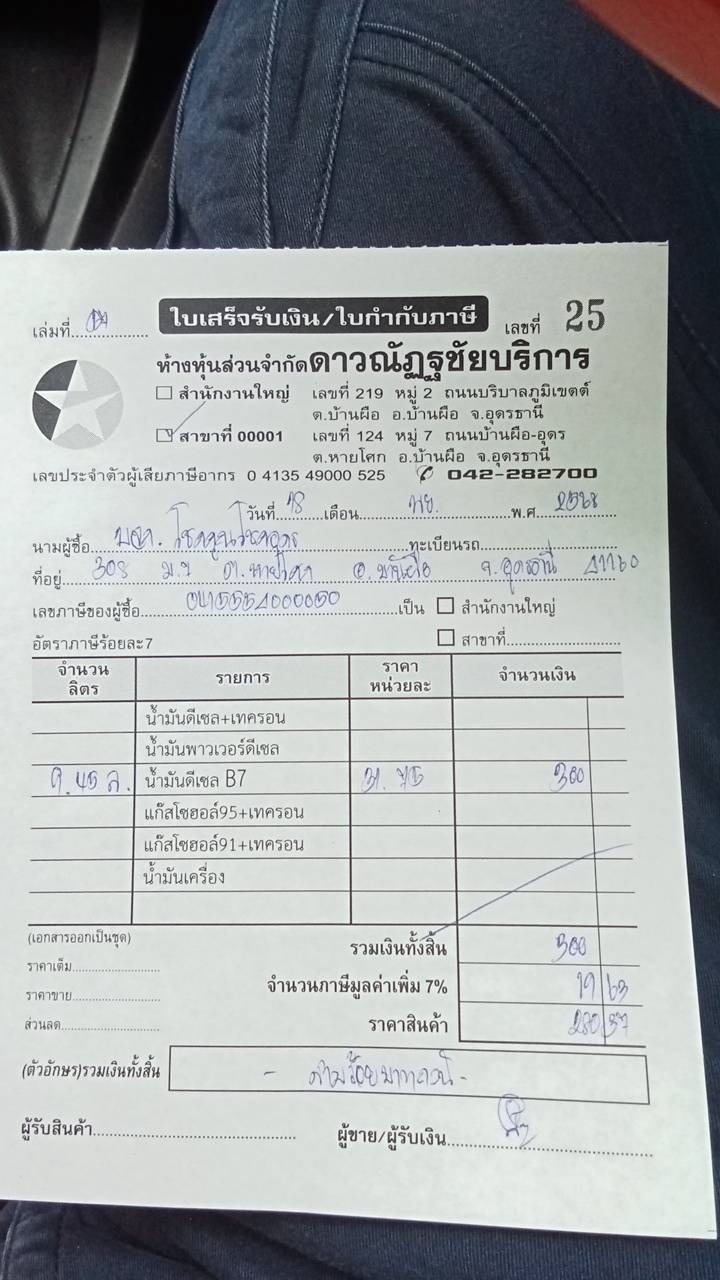 ใบเสร็จรับเงิน/ใบกำกับภาษี
เล่มที่ เลขที่ 25
ห้างหุ้นส่วนจำกัดดาวณัฏฐชัยบริการ
สำนักงานใหญ่ เลขที่ 219 หมู่ 2 ถนนบริบาลภูมิเขตต์
ต.บ้านผือ อ.บ้านผือ จ.อุดรธานี
สาขาที่ 00001 เลขที่ 124 หมู่ 7 ถนนบ้านผือ-อุดร
ต.หายโศก อ.บ้านผือ จ.อุดรธานี
เลขประจำตัวผู้เสียภาษีอากร 0 4135 49000 525 042-282700
วันที่ 18 เดือน พย. พ.ศ. 2568
นามผู้ซื้อ ทะเบียนรถ
ที่อยู่ 308 ต. หายโศก อ. บ้านผือ จ. อุดรธานี 41160
เลขภาษีของผู้ซื้อ เป็น สำนักงานใหญ่
อัตราภาษีร้อยละ7 สาขาที่
จำนวนลิตร รายการ ราคาหน่วยละ จำนวนเงิน
น้ำมันดีเซล+เทครอน
น้ำมันพาวเวอร์ดีเซล
9.45 ล. น้ำมันดีเซล B7 31.75 300
แก๊สโซฮอล์95+เทครอน
แก๊สโซฮอล์91+เทครอน
น้ำมันเครื่อง
(เอกสารออกเป็นชุด)
รวมเงินทั้งสิ้น 300
ราคาเต็ม
จำนวนภาษีมูลค่าเพิ่ม 7% 19 63
ราคาขาย
ราคาสินค้า 280 37
ส่วนลด
(ตัวอักษร)รวมเงินทั้งสิ้น - สามร้อยบาทถ้วน -
ผู้รับสินค้า ผู้ขาย/ผู้รับเงิน